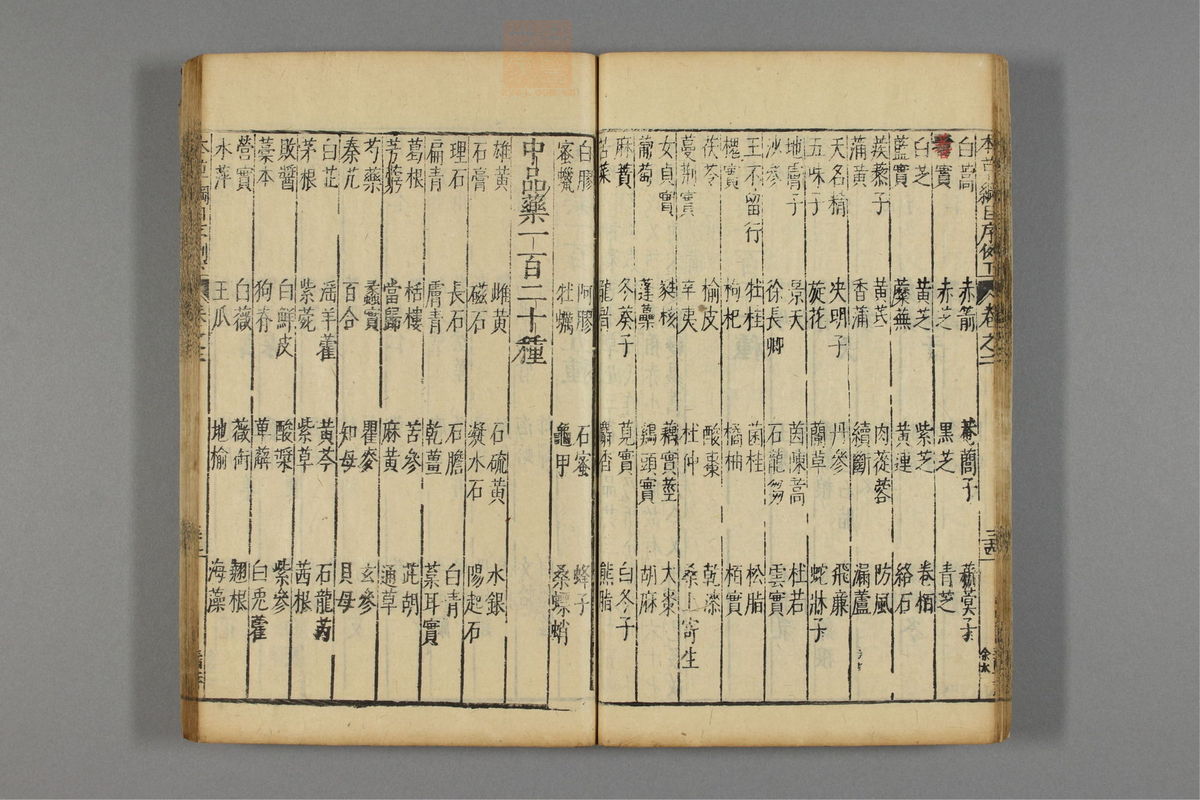 本草綱目序例下 卷之二
白蒿 赤箭 菴䕡子 菥蓂子
蓍實 赤芝 黑芝 青芝
白芝 黃芝 紫芝 卷柏
藍實 蘼蕪 黃連 絡石
蒺藜子 黃芪 肉蓯蓉 防風
蒲黃 香蒲 續斷 漏蘆
天名精 決明子 丹參 飛廉
五味子 旋花 蘭草 蛇牀子
地膚子 景天 茵蔯蒿 杜若
沙參 徐長卿 石龍芻 雲實
王不留行 牡桂 菌桂 松脂
槐實 枸杞 橘柚 栢實
茯苓 榆皮 酸棗 乾漆
蔓荆實 辛夷 杜仲 桑上寄生
女貞實 蕤核 藕實莖 大棗
葡萄 蓬蘽 鷄頭實 胡麻
麻蕡 冬葵子 莧實 白冬子
苦菜 龍骨 麝香 熊脂
白膠 阿膠 石蜜 蜂子
蜜蠟 牡蠣 龜甲 桑螵蛸
中品藥一百二十種
雄黃 雌黃 石硫黃 水銀
石膏 磁石 凝水石 陽起石
理石 長石 石膽 白青
扁青 膚青 乾薑 葈耳實
葛根 栝樓 苦參 茈胡
芎藭 當歸 麻黃 通草
芍藥 蠡實 瞿麥 玄參
秦艽 百合 知母 貝母
白芷 淫羊藿 黃芩 石龍芮
茅根 紫菀 紫草 茜根
敗醬 白鮮皮 酸漿 紫參
藁本 狗脊 萆薢 白兎藿
營實 白薇 薇銜 翹根
水萍 王瓜 地榆 海藻